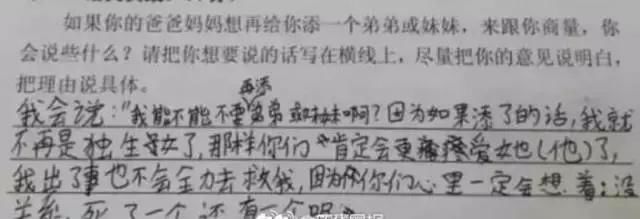 如果你的爸爸妈妈想再给你添一个弟弟或妹妹，来跟你商量，你
会说些什么？请把你想要说的话写在横线上，尽量把你的意见说明白，
把理由说具体。
再添
我会说：“我能不能不要弟弟或妹妹啊？因为如果添了的话，我就
不再是独生子女了，那样你们肯定会更疼爱她（他）了，
我出了事也不会全力去救我，因为你们心里一定会想着：没
关系，死了一个还有一个呢